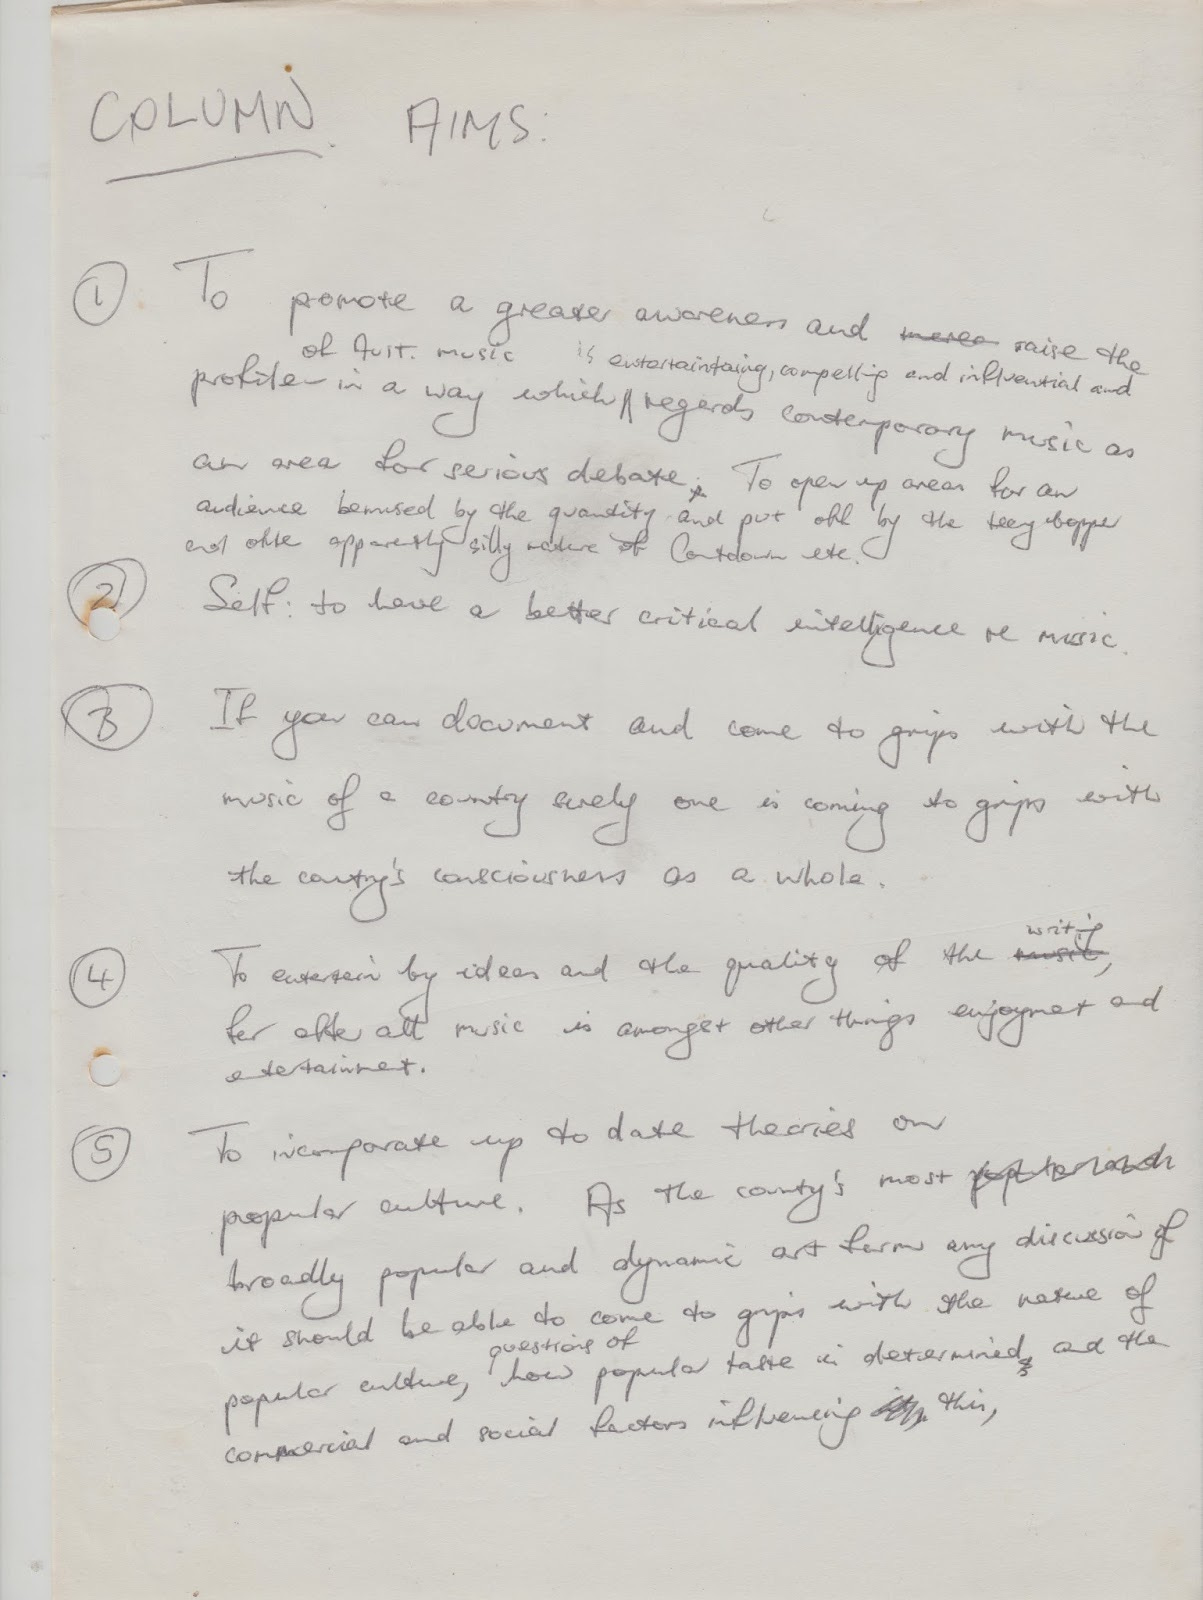 COLUMN AIMS:
① To promote a greater awareness and raise the
of Aust. music is entertaintaing, compelling and influential and
profile in a way which regards contemporary music as
an area for serious debate. To open up areas for an
audience bemused by the quantity and put off by the teeny bopper
and ofte apparently silly nature of Contdown etc.
② Self: to have a better critical intelligence re music.
③ If you can document and come to grips with the
music of a country surely one is coming to grips with
the contry's consciousness as a whole.
writing
④ To entertain by ideas and the quality of the music,
for after all music is amongst other things enjoyment and
entertainment.
⑤ To incorporate up to date theories on
popular culture. As the county's most
broadly popular and dynamic art form any discussion of
it should be able to come to grips with the nature of
questions of
popular culture, how popular taste is determined, and the
commercial and social factors influencing this,